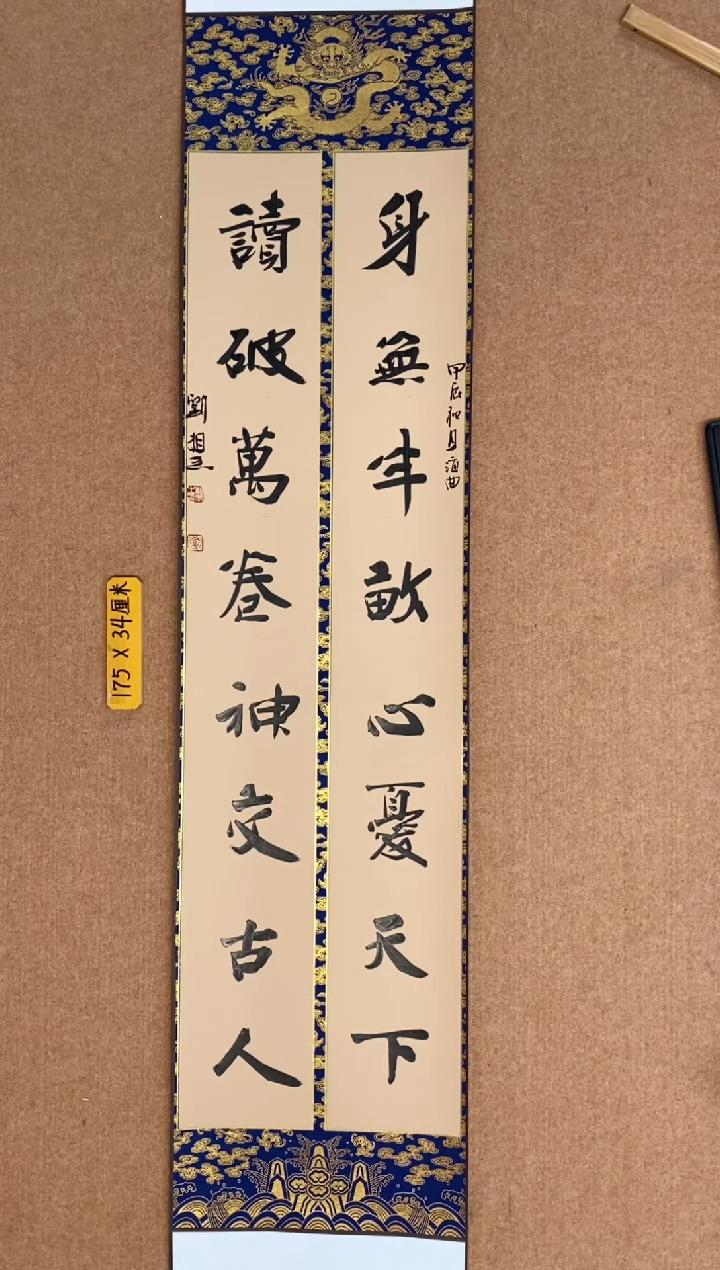 身無半畝心憂天下
讀破萬卷神交古人
甲辰
劉
175 X 34厘米